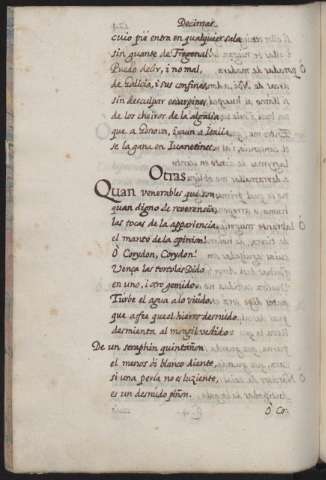 Decimas.
cuio pie entra en qualquier sala
sin guante de Fregenal!
Puedo decir, i no mal,
de Galicia, i sus confines,
sin desculpar escarpines
de los cheiros de la algalia,
que a Genova, i aun a Italia
se la gana en
Otras.
Quan venerables que son,
quan digno de reverencia,
las tocas de la apparencia,
el manto de la opinion!
Ò Corydon, Corydon!
Vença las tortolas Dido
en uno, i otro gemido:
Turbe el agua a lo viudo,
que a fee que el hierro desnudo
desmienta al mongil vestido:
De un seraphin quintañon
el menos oi blanco diente,
si una perla no es luziente,
es un desnudo piñon.
Ò Co-